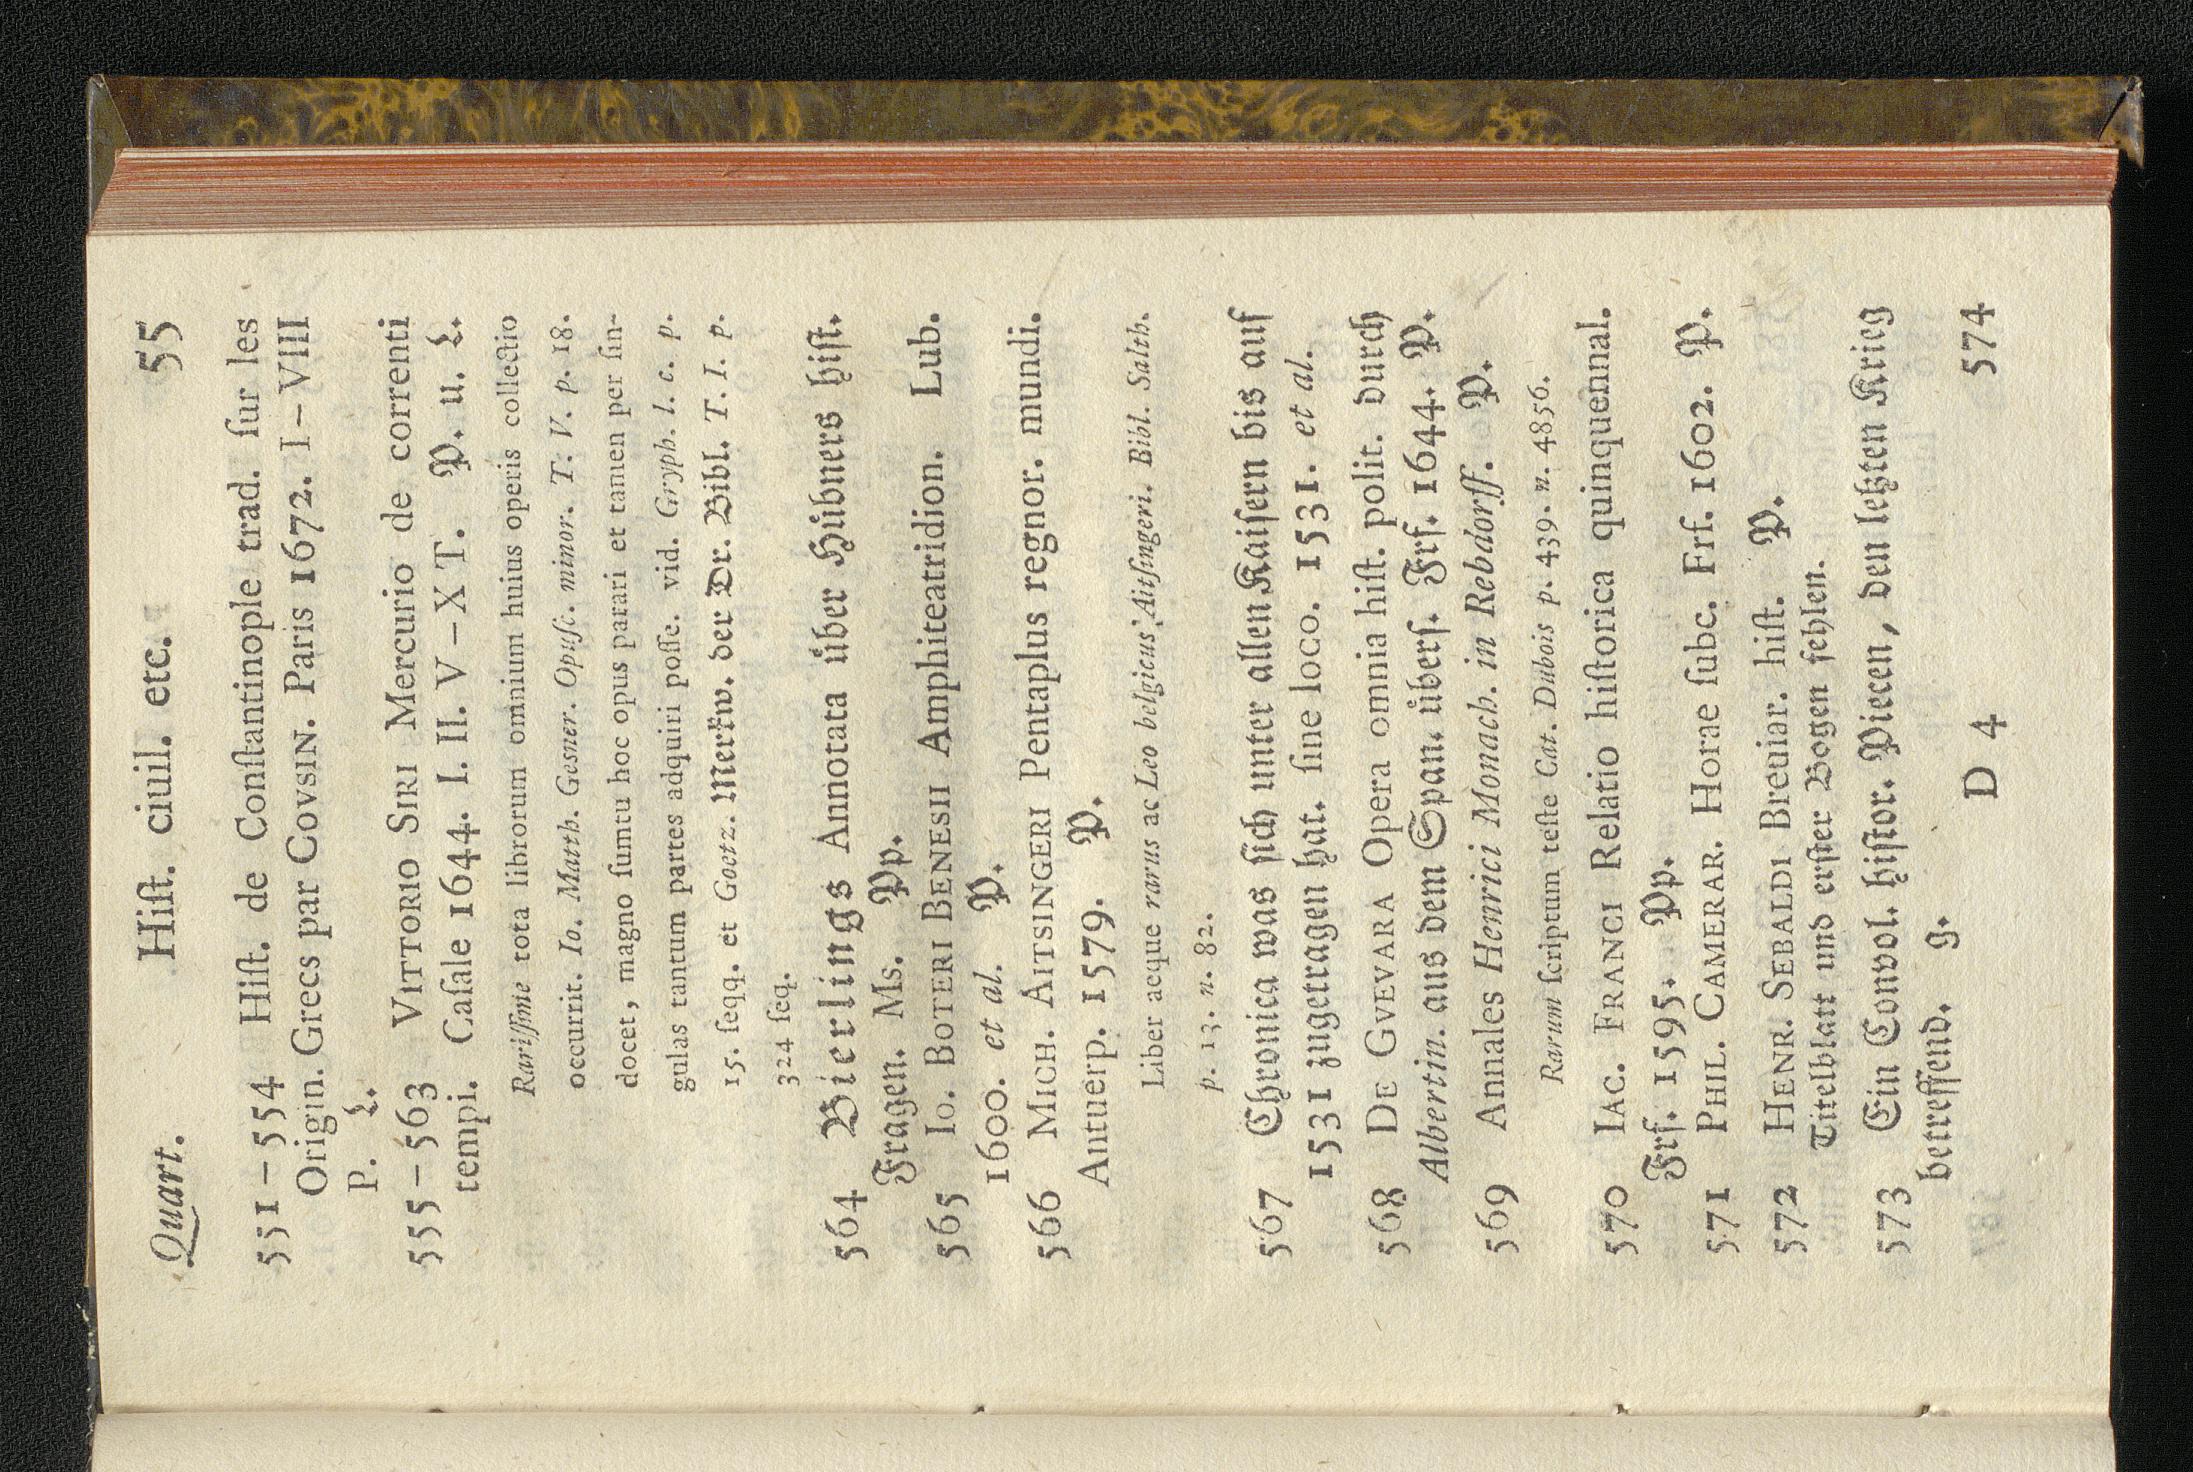 Quart. Hiſt. ciuil. etc. 55
551–554 Hiſt. de Conſtantinople trad. ſur les
Origin. Grecs par COVSIN. Paris 1672. I–VIII
P. L.
555–563 VITTORIO SIRI Mercurio de correnti
tempi. Caſale 1644. I. II. V–X T. P. u. L.
Rariſſime tota librorum omnium huius operis collectio
occurrit. Io. Matth. Gesner. Opuſc. minor. T. V. p. 18.
docet, magno ſumtu hoc opus parari et tamen per ſin-
gulas tantum partes adquiri poſſe. vid. Gryph. l. c. p.
15. ſeqq. et Goetz. Merkw. der Dr. Bibl. T. I. p.
324 ſeq.
564 Bierlings Annotata über Hübners hiſt.
Fragen. Ms. Pp.
565 IO. BOTERI BENESII Amphiteatridion. Lub.
1600. et al. P.
566 MICH. AITSINGERI Pentaplus regnor. mundi.
Antuerp. 1579. P.
Liber aeque rarus ac Leo belgicus Aitſingeri. Bibl. Salth.
p. 13. n. 82.
567 Chronica was ſich unter allen Kaiſern bis auf
1531 zugetragen hat. ſine loco. 1531. et al.
568 DE GVEVARA Opera omnia hiſt. polit. durch
Albertin. aus dem Span. überſ. Frf. 1644. P.
569 Annales Henrici Monach. in Rebdorff. P.
Rarum ſcriptum teſte Cat. Dubois p. 439. n. 4856.
570 IAC. FRANCI Relatio hiſtorica quinquennal.
Frf. 1595. Pp.
571 PHIL. CAMERAR. Horae ſubc. Frf. 1602. P.
572 HENR. SEBALDI Breuiar. hiſt. P.
Titelblatt und erſter Bogen fehlen.
573 Ein Convol. hiſtor. Piecen, den letzten Krieg
betreffend. g.
D 4 574